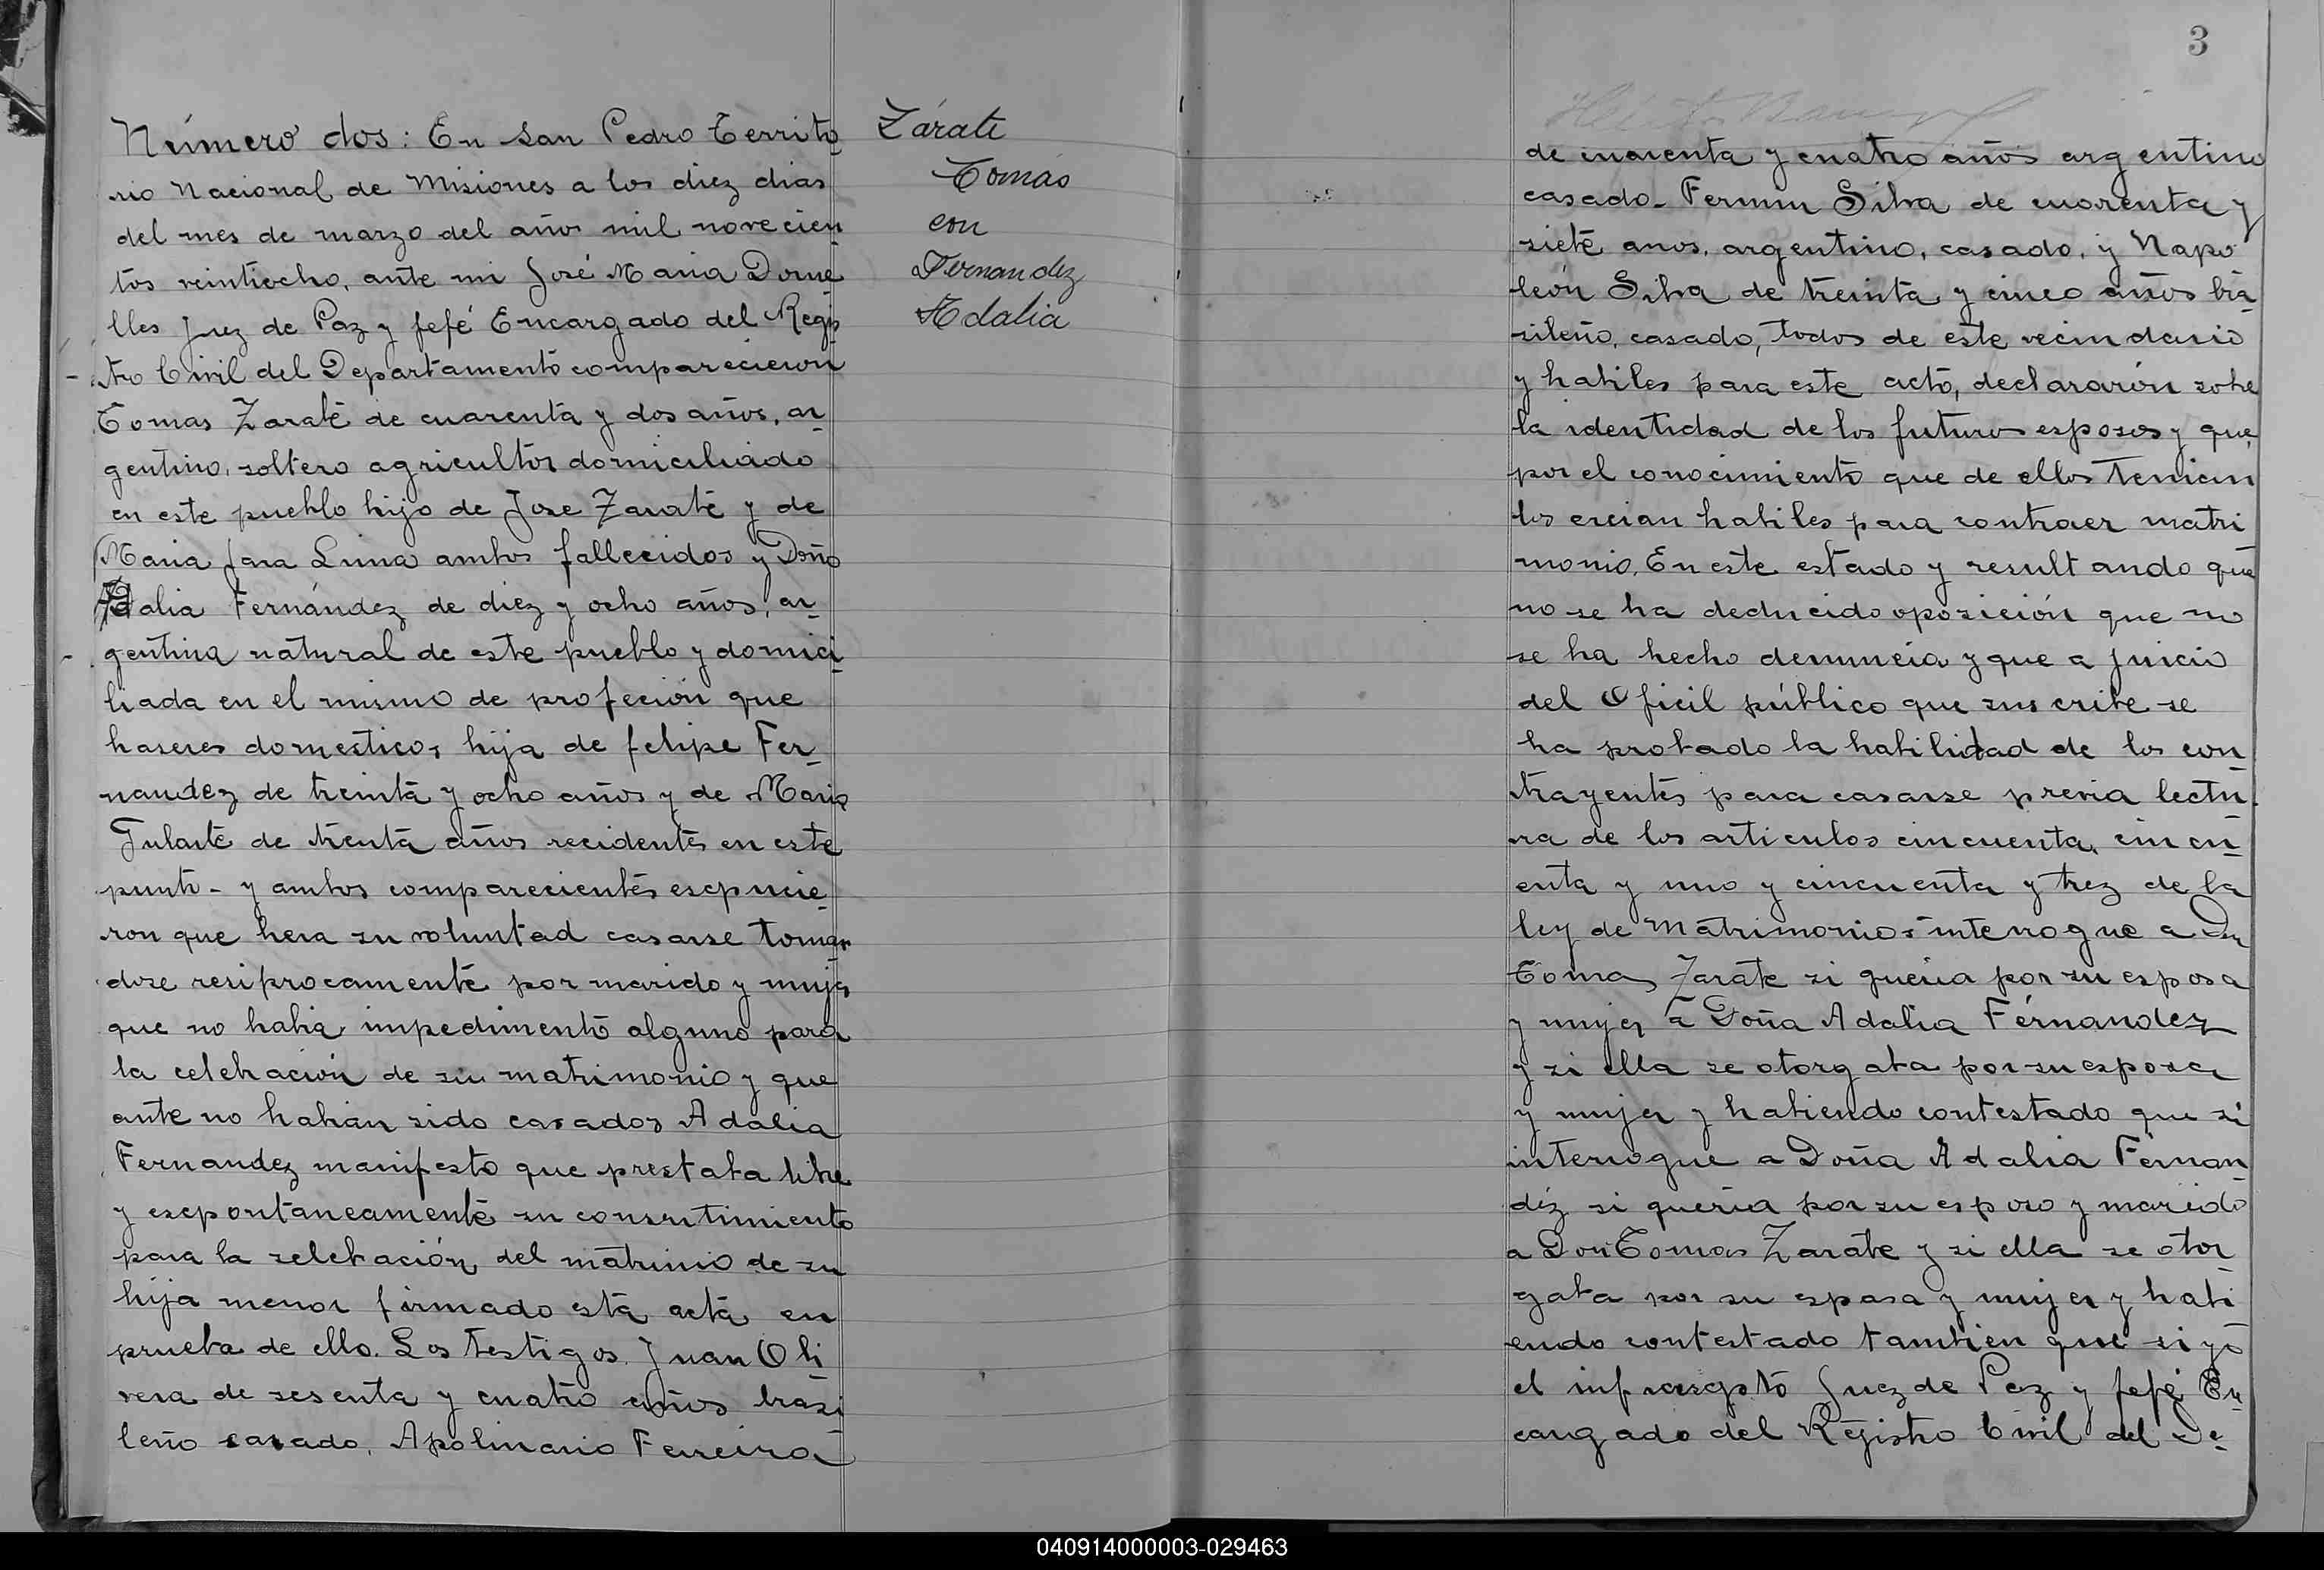 Número dos: En San Pedro Territo
rio Nacional de Misiones a los diez dias
del mes de marzo del años mil novecien
tos veintiocho, ante mi José Maria Dorne
lles Juez de Paz y fefé Encargado del Regis
tro Civil del Departamento comparecieron
Tomas Zarate de cuarenta y dos años, ar
gentino, soltero agricultor domiciliado
en este pueblo hijo de Jose Zarate y de
Maria Jara Luna ambos fallecidos y Doña
Adalia Fernández de diez y ocho años, ar
gentina natural de este pueblo y domici
liada en el mismo de profecion que
haseres domesticos, hija de felipe Fer
nandez de treinta y ocho años y de Maria
Gularte de trenta años recidentes en este
punto - y ambos comparecientes escpucie
ron que hera su voluntad casarse toman
dose resiprocamente por marido y mujer
que no habia impedimento alguno para
la celebracion de su matrimonio y que
ante no habian sido casados Adalia
Fernandez manifesto que prestaba libre
y escpontaneamente su consentimiento
para la selebración del matrimio de su
hija menor firmado esta acta en
prueba de ello. Los testigos. Juan Oli
vera de sesenta y cuatro años brasi
leño casado, Apolinario Ferreira
Zárate
Tomás
con
Fernandez
Adalia
3
de cuarenta y cuatro años argentino
casado. Fermin Silva de cuarenta y
siete anos, argentino, casado, y Napo
león Silva de treinta y cinco años bra
sileño, casado, todos de este vecindario
y habiles para este acto, declararón sobre
la identidad de los futuros esposos y que
por el conocimiento que de ellos tenian
los creian habiles para contraer matri
monio. En este estado y resultando que
no se ha deducido oposición que no
se ha hecho denuncia y que a juicio
del Oficil público que suscribe se
ha probado la habilidad de los con
trayentes para casarse previa lectu
ra de los articulos cincuenta, cincu
enta y uno y cincuenta y trez de la
ley de Matrimonios interrogue a Don
Tomas Zarate si queria por su esposa
y mujer a Doña Adalia Férnandez
y si ella se otorgaba por su esposa
y mujer y habiendo contestado que si
interrogue a Doña Adalia Fernan
dez si queria por su esposo y marido
a Don Tomas Zarate y si ella se otor
gaba por su esposa y mujer y habi
endo contestado tambien que si yo
el infrascripto Juez de Paz y fefé En
cargado del Registro Civil del De
040914000003-029463